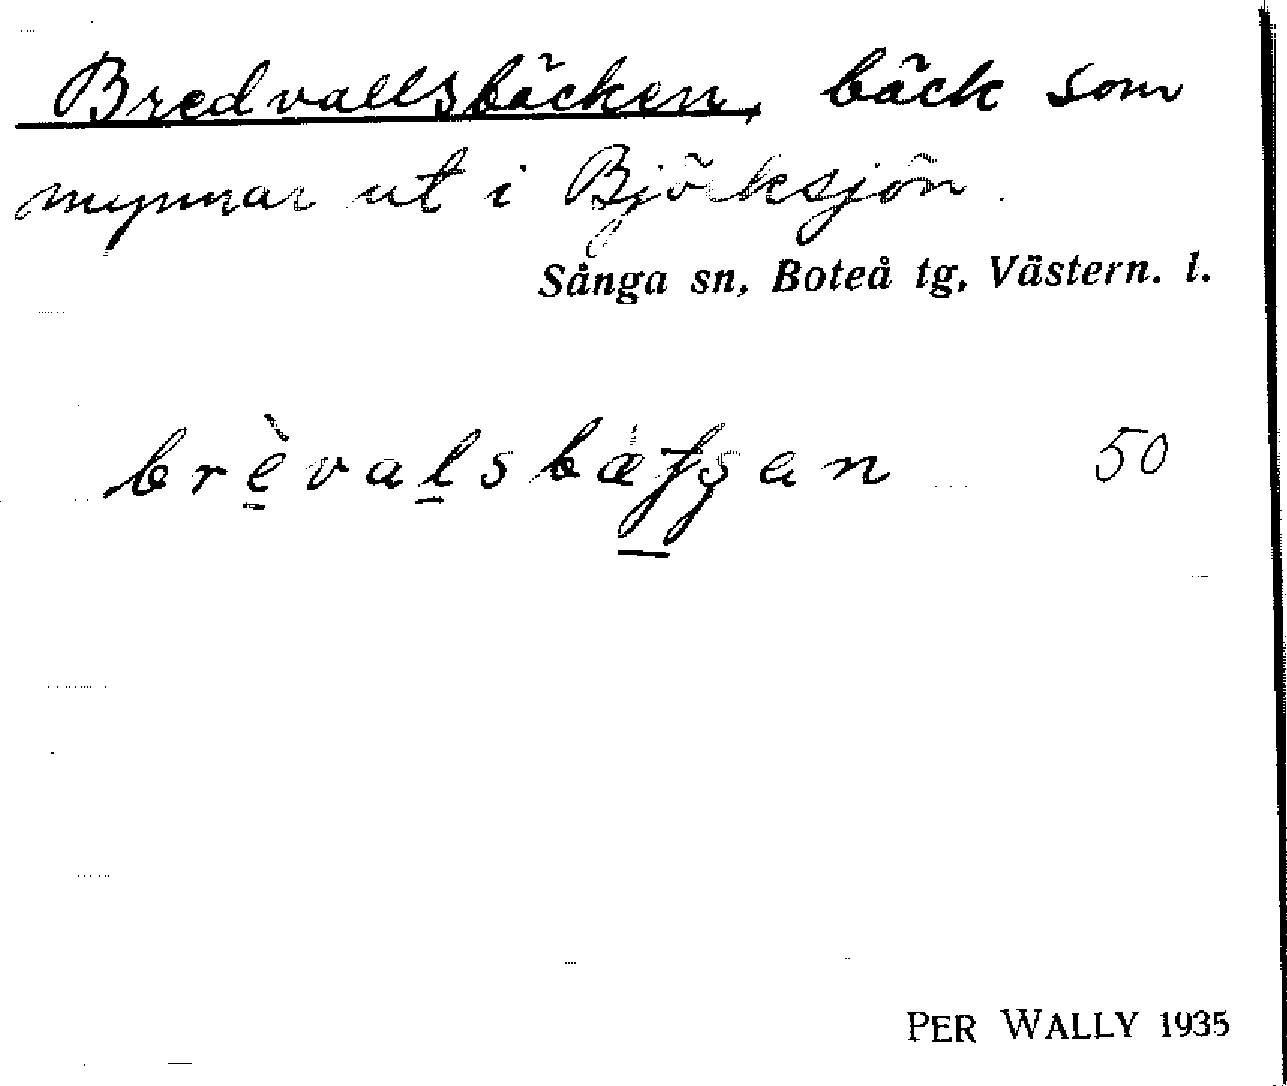 Bredvallsbäcken, bäck som
mynnar ut i Björksjön.
Sånga sn, Boteå tg, Västern. l.
50
PER WALLY 1935